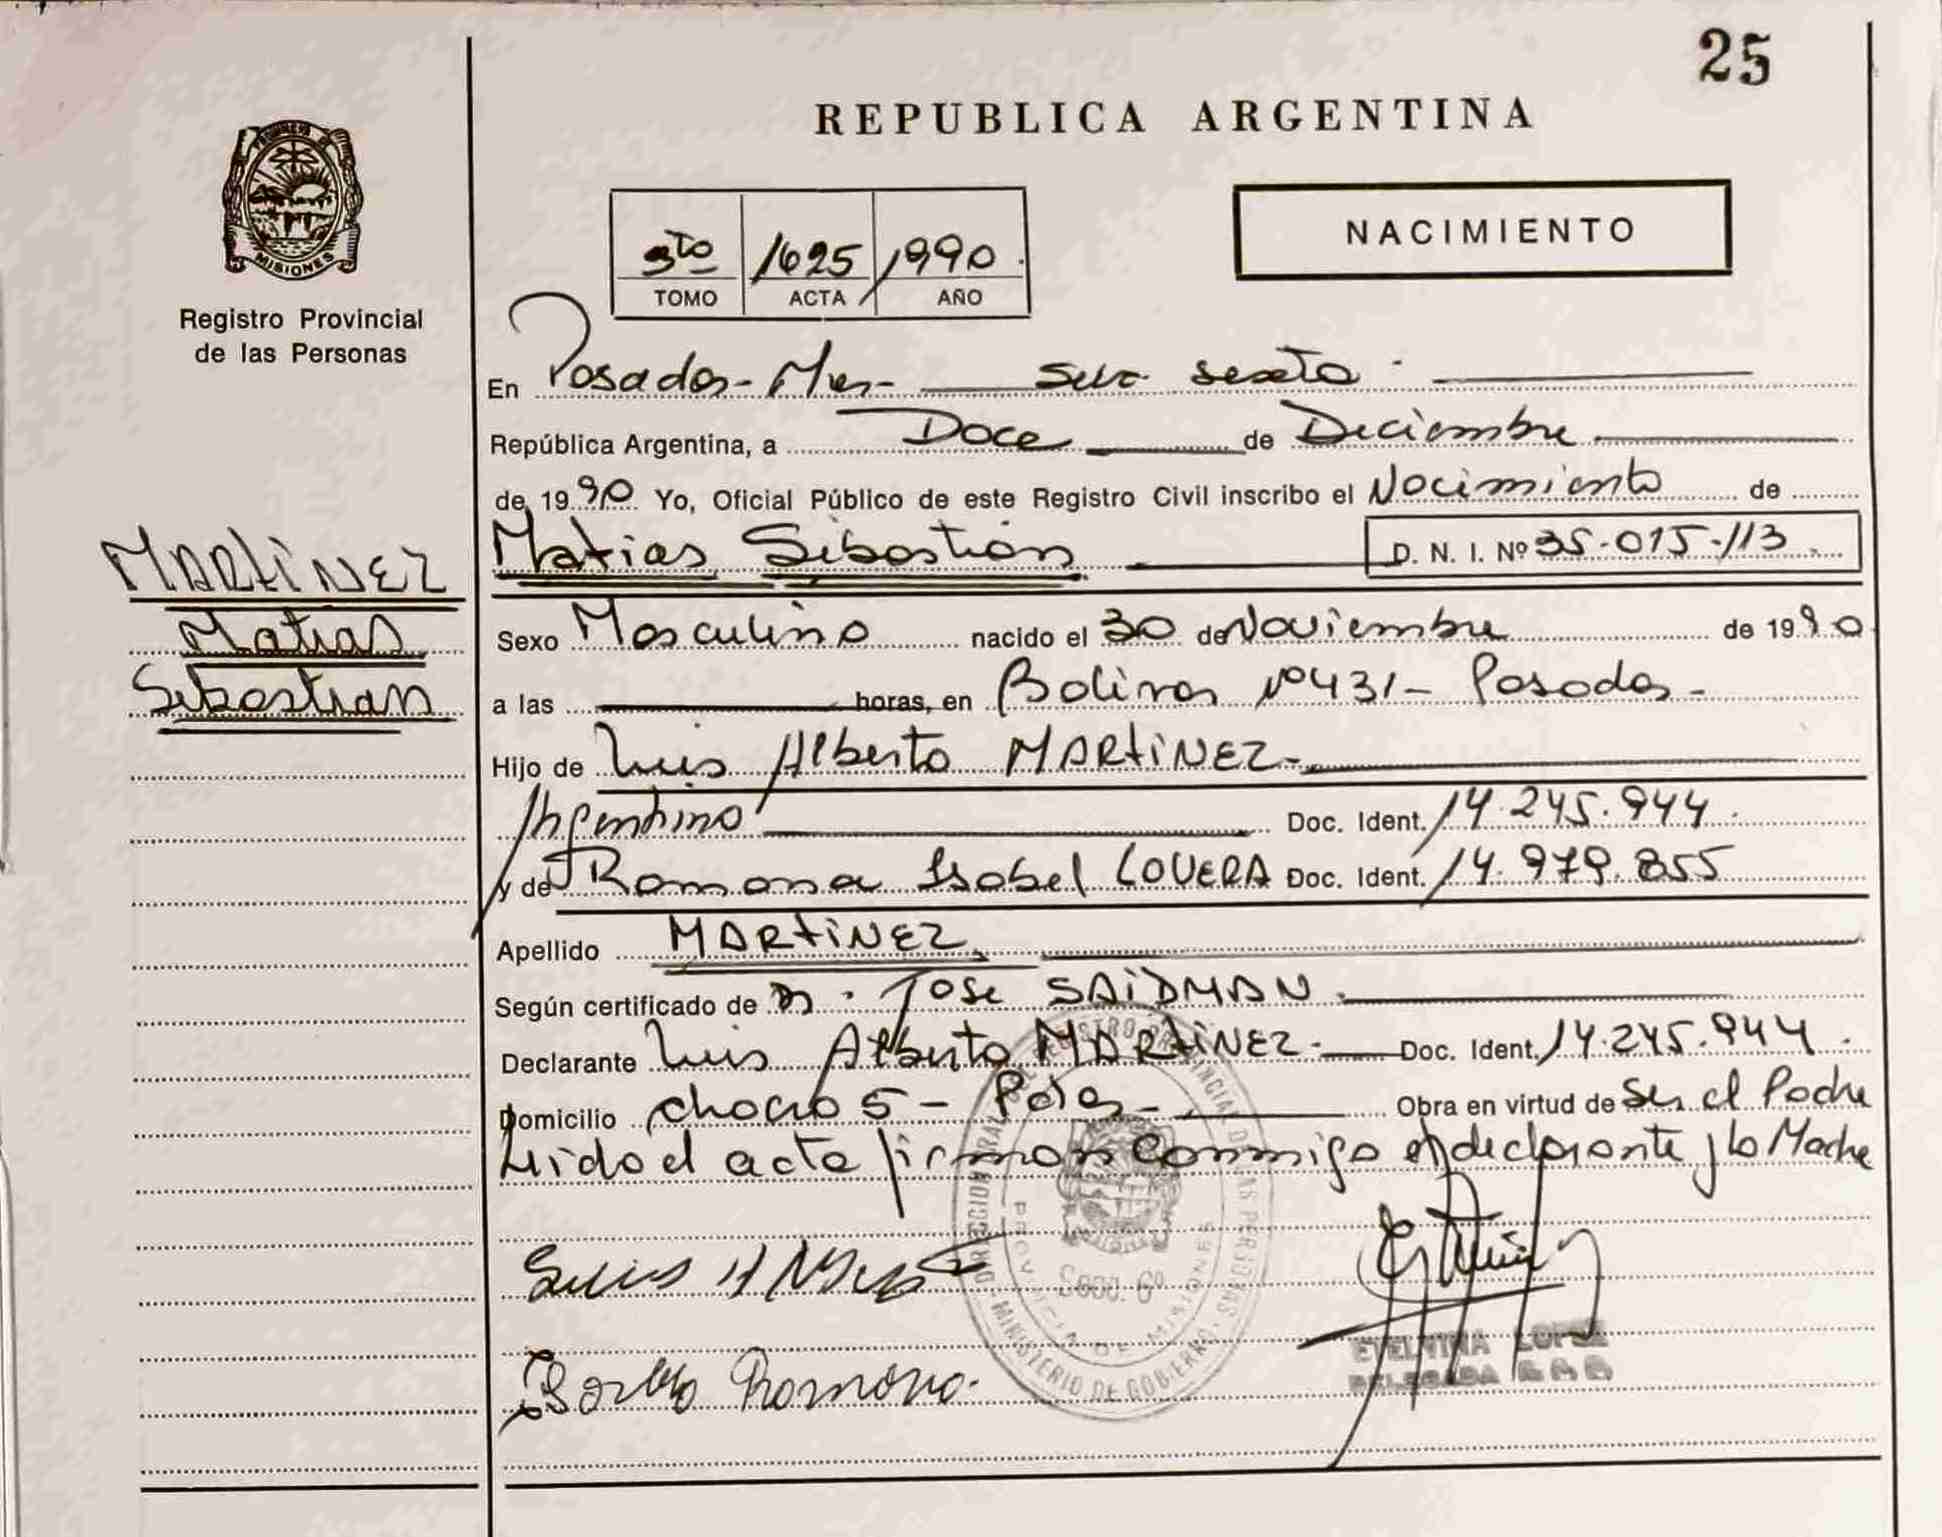 25
REPUBLICA ARGENTINA
NACIMIENTO
3to 1625 1990
TOMO ACTA AÑO
MISIONES
Registro Provincial
de las Personas
En Posadas - Mnes - Secc. sexta
República Argentina, a Doce de Diciembre
de 1990 Yo, Oficial Público de este Registro Civil inscribo el Nacimiento de
MARtiNEZ
Matias
Sebastian
Matias Sebastián D. N. I. Nº 35.015.113
Sexo Masculino nacido el 30 de Noviembre de 1990
a las horas, en Bolivar Nº 431 - Posadas -
Hijo de Luis Alberto MARtiNEZ -
Argentino Doc. Ident. 14.245.944.
y de Ramona Isabel LOVERA Doc. Ident. 14.979.855
Apellido MARtiNEZ
Según certificado de Dr. Jose SAIDMAN.
Declarante Luis Alberto MARtiNEZ - Doc. Ident. 14.245.944.
Domicilio chacra 5 - Pdas - Obra en virtud de Ser el Padre
Leida el acta firman conmigo el declarante y la Madre
MINISTERIO DE GOBIERNO
PROVINCIA DE MISIONES
Secc. 6º
Ramona
ETELVINA LOPEZ
DELEGADA